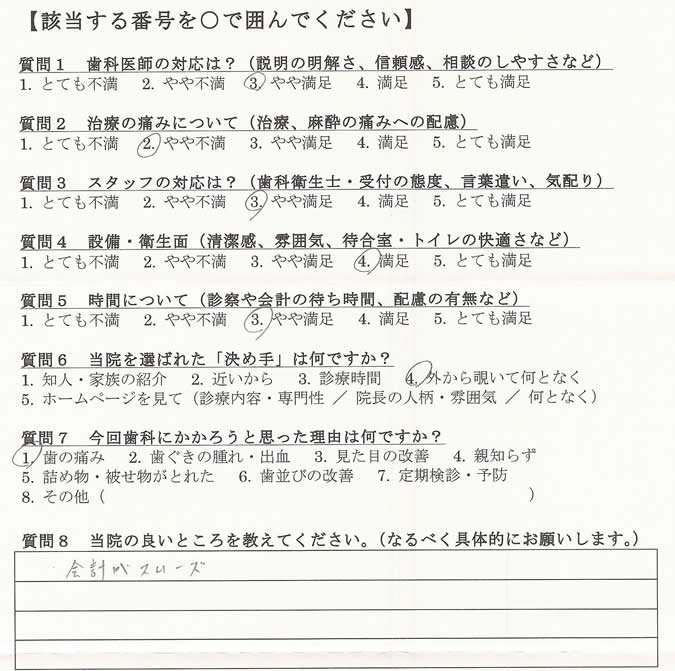 【該当する番号を○で囲んでください】
質問1 歯科医師の対応は?(説明の明解さ、信頼感、相談のしやすさなど)
1. とても不満 2. やや不満 3. やや満足 4. 満足 5. とても満足
質問2 治療の痛みについて(治療、麻酔の痛みへの配慮)
1. とても不満 2. やや不満 3. やや満足 4. 満足 5. とても満足
質問3 スタッフの対応は?(歯科衛生士・受付の態度、言葉遣い、気配り)
1. とても不満 2. やや不満 3. やや満足 4. 満足 5. とても満足
質問4 設備・衛生面(清潔感、雰囲気、待合室・トイレの快適さなど)
1. とても不満 2. やや不満 3. やや満足 4. 満足 5. とても満足
質問5 時間について(診察や会計の待ち時間、配慮の有無など)
1. とても不満 2. やや不満 3. やや満足 4. 満足 5. とても満足
質問6 当院を選ばれた「決め手」は何ですか?
1. 知人・家族の紹介 2. 近いから 3. 診療時間 4. 外から覗いて何となく
5. ホームページを見て(診療内容・専門性 / 院長の人柄・雰囲気 / 何となく)
質問7 今回歯科にかかろうと思った理由は何ですか?
1. 歯の痛み 2. 歯ぐきの腫れ・出血 3. 見た目の改善 4. 親知らず
5. 詰め物・被せ物がとれた 6. 歯並びの改善 7. 定期検診・予防
8. その他( )
質問8 当院の良いところを教えてください。(なるべく具体的にお願いします。)
会計がスムーズ